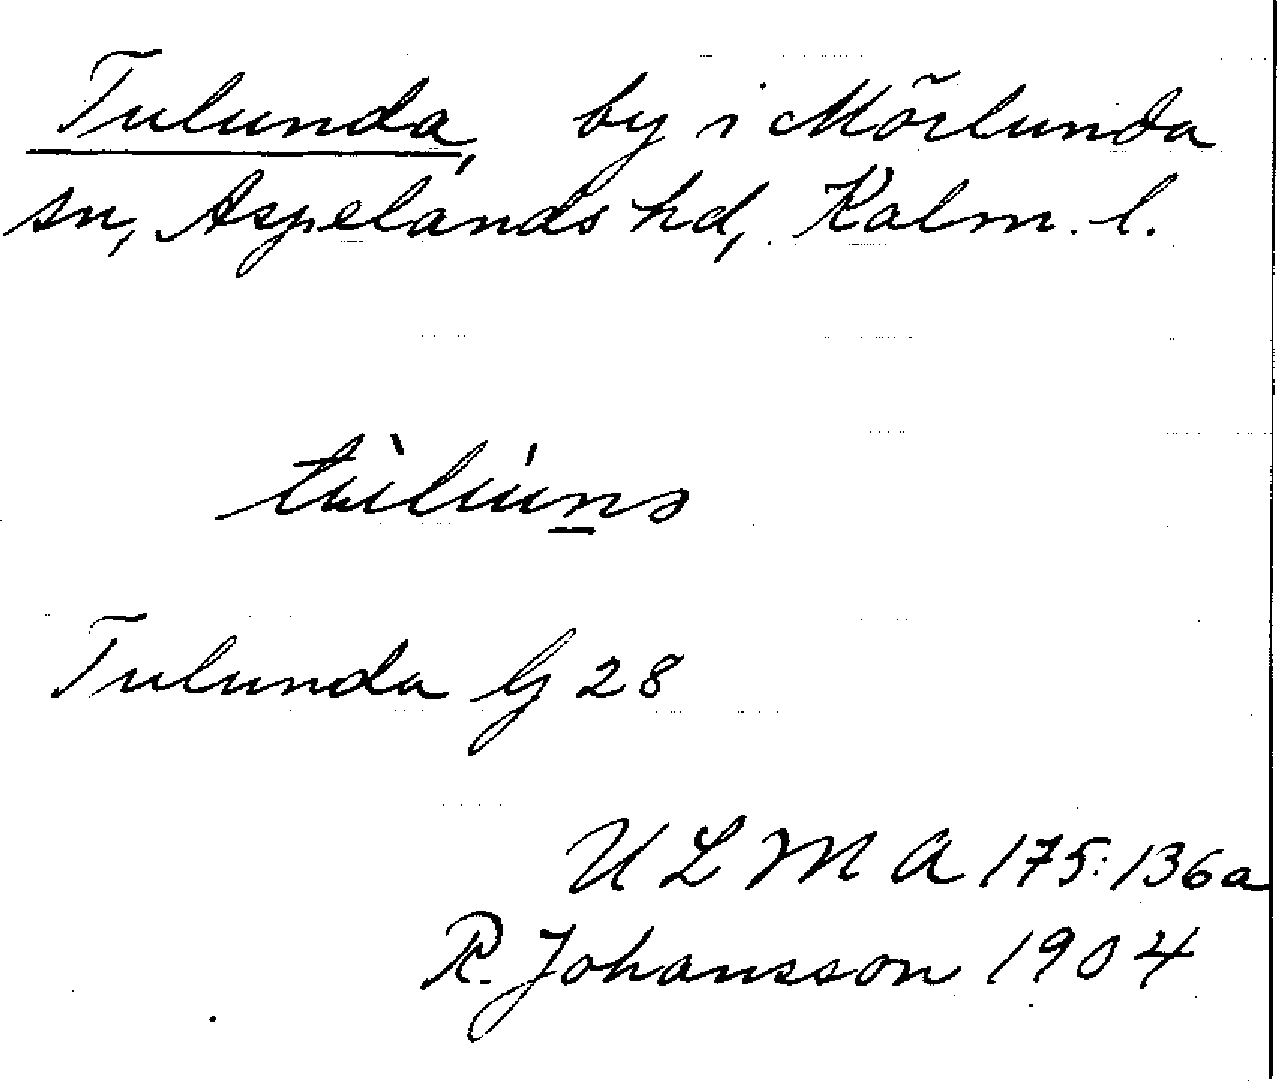 Tulunda, by i Mörlunda
sn, Aspelands hd, Kalm. l.
tùlúns
Tulunda G 28
ULMA 175:136a
R. Johansson 1904